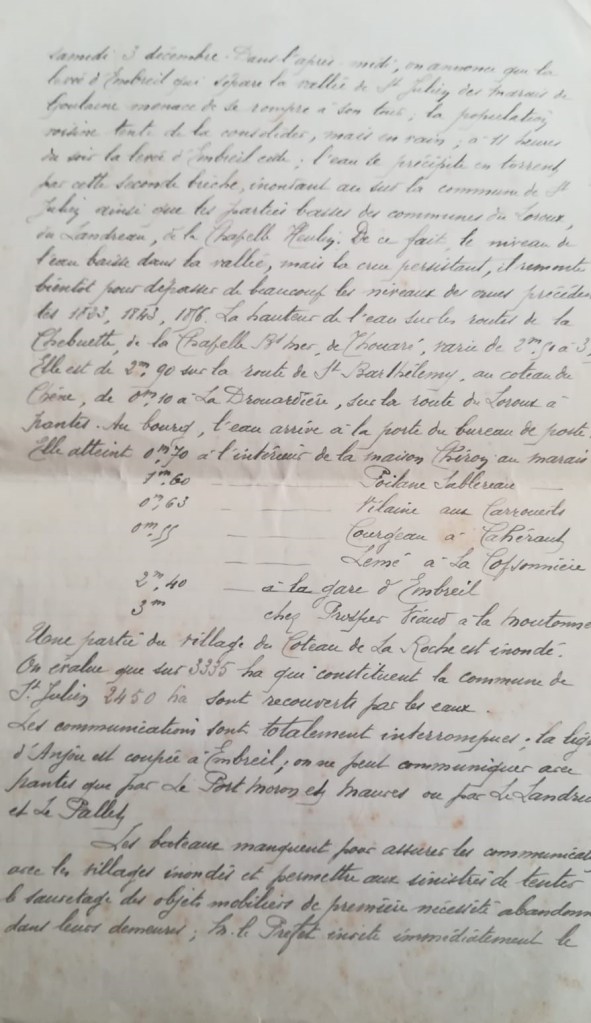 samedi 3 décembre. Dans l'après-midi, on annonce que la
levée d'Embreil qui sépare la vallée de St Julien des marais de
Goulaine menace de se rompre à son tour ; la population
voisine tente de la consolider, mais en vain ; à 11 heures
du soir la levée d'Embreil cède ; l'eau se précipite en torrent
par cette seconde brèche, inondant au sur la commune de St
Julien ainsi que les parties basses des communes du Loroux,
du Landreau, de la Chapelle Heulin. De ce fait, le niveau de
l'eau baisse dans la vallée, mais la crue persistant, il remonte
bientôt pour dépasser de beaucoup les niveaux des crues précéde
les 1823, 1843, La hauteur de l'eau sur les routes de la
Chebuette, de la Chapelle Bse mer, de Thouaré, varie de 2m,50 à 3,
Elle est de 2m,90 sur la route de St Barthélemy, au coteau du
Chêne, de 0m,10 à La Drouardière, sur la route du Loroux à
Nantes. Au bourg, l'eau arrive à la porte du bureau de poste.
Elle atteint 0m,70 à l'intérieur de la maison Chéron au marais
1m,60 — — Poilane Sablereau —
0m,63 — — Vilaine aux Carroueils
0m,55 — — Courgeau à Cahérault
— — Lemé à La Cossonnière
2m,40 — à la gare d'Embreil
3m chez Prosper Viaud à la Moutonne
Une partie du village du Coteau de La Roche est inondé.
On évalue que sur 3335 ha qui constituent la commune de
St Julien 2450 ha sont recouverts par les eaux.
Les communications sont totalement interrompues ; la lig
d'Anjou est coupée à Embreil ; on ne peut communiquer avec
Nantes que par Le Port Moron et Mauves ou par Le Landre
et Le Pallet
Les bateaux manquent pour assurer les communicat
avec les villages inondés et permettre aux sinistrés de tenter
le sauvetage des objets mobiliers de première nécessité abandonn
dans leurs demeures ; M. le Préfet invite immédiatement le